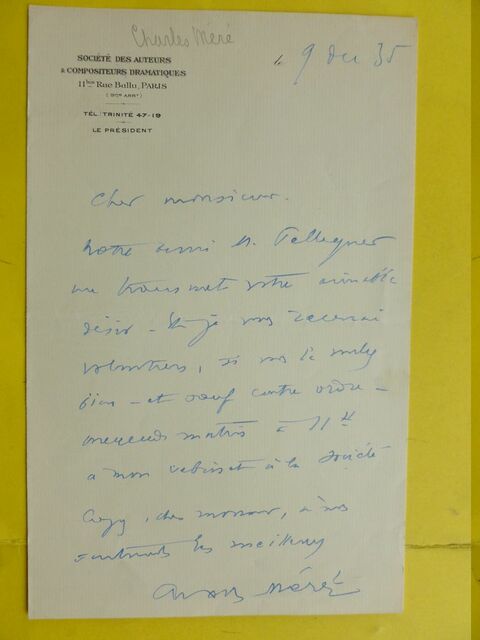 Charles Méré
SOCIÉTÉ DES AUTEURS
& COMPOSITEURS DRAMATIQUES
11bis Rue Ballu, PARIS
(9me ARRt)
TÉL : TRINITÉ 47-19
LE PRÉSIDENT
le 9 Dec 35
Cher monsieur.
notre ami M.
me transmet votre aimable
désir - Et je vous recevrai
volontiers, si vous le voulez
bien - et sauf contre ordre -
mercredi matin à 11H
à mon cabinet à la Société
Croyez, cher monsieur, à mes
sentiments les meilleurs
Charles Méré